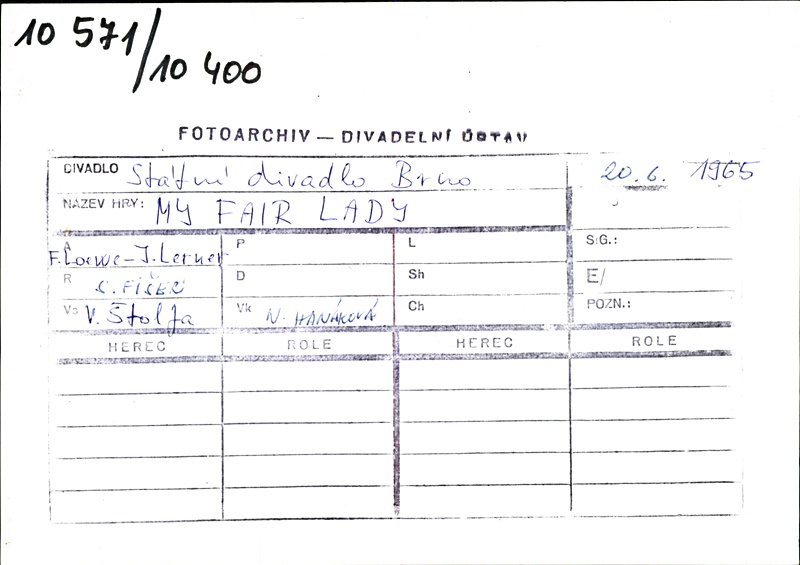 10 571/
10 400
FOTOARCHIV — DIVADELNÍ ÚSTAV
DIVADLO Státní divadlo Brno 20. 6. 1965
NÁZEV HRY: MY FAIR LADY
A F. Loewe-J. Lerner P L S.G.:
R S. FIŠER D Sh E/
Vs V. Štolfa Vk N. HANÁKOVÁ Ch POZN.:
HEREC ROLE HEREC ROLE